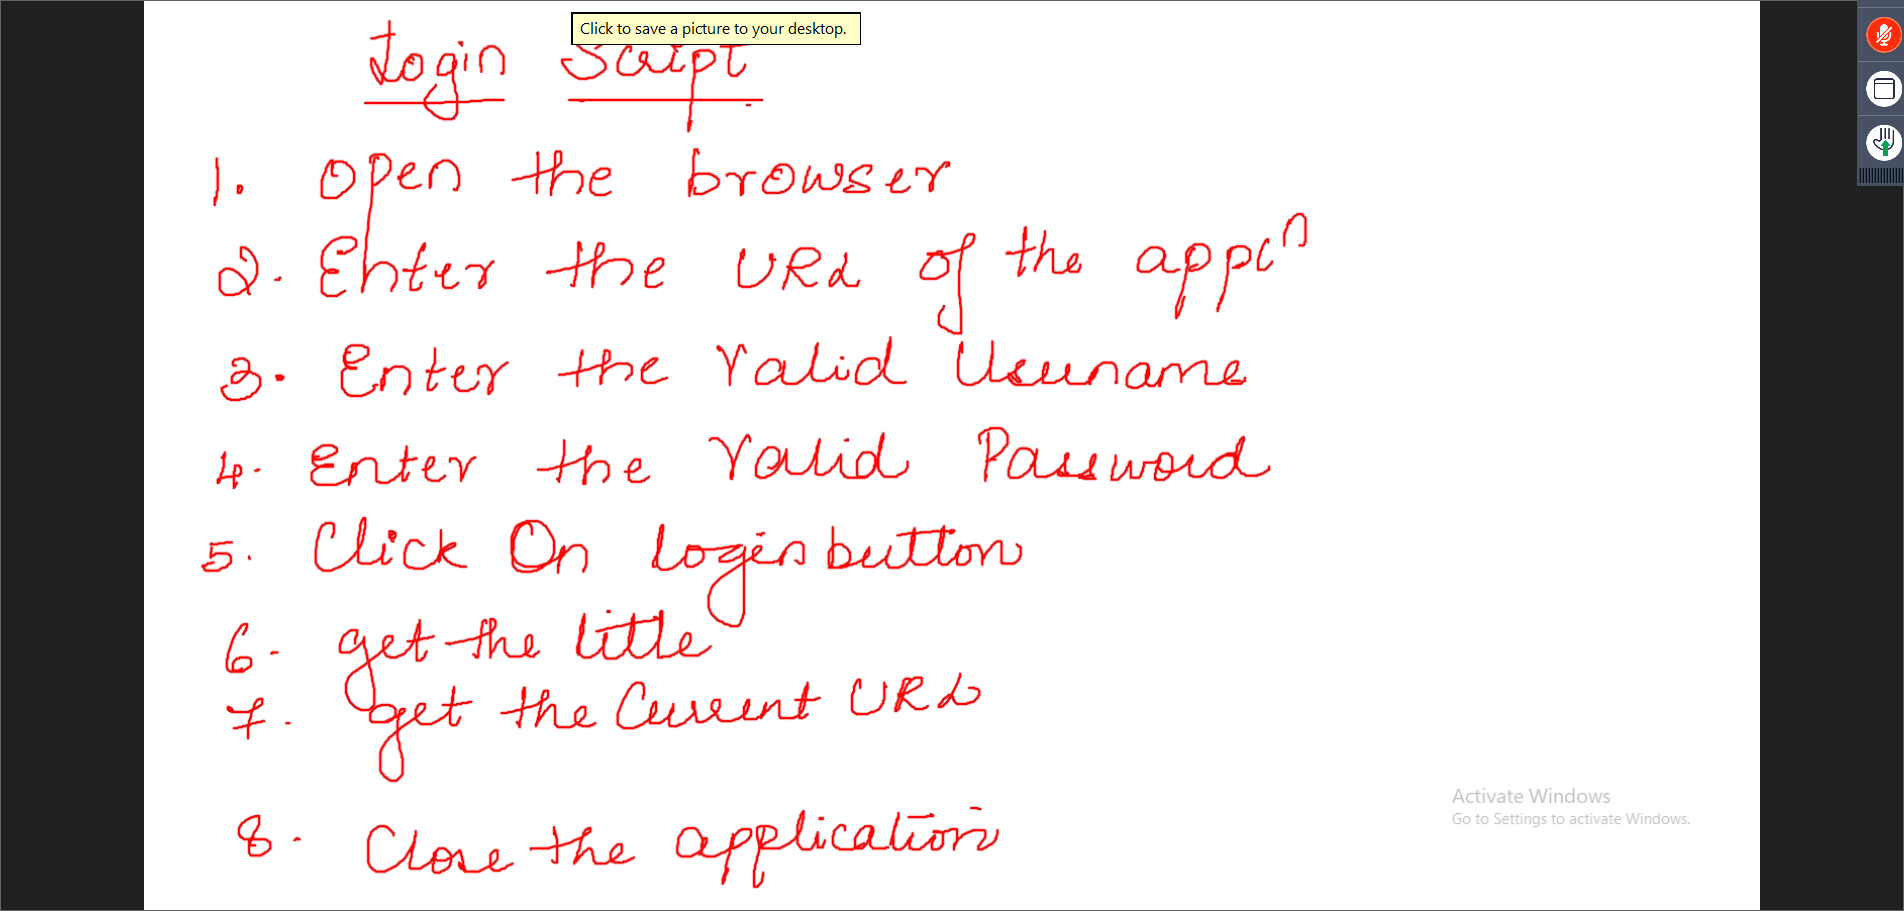 Click to save a picture to your desktop.
Login Script
1. Open the browser
2. Enter the URL of the appcn
3. Enter the Valid Username
4. Enter the Valid Password
5. Click On login button
6. get the title
7. get the Current URL
8. Close the application
Activate Windows
Go to Settings to activate Windows.